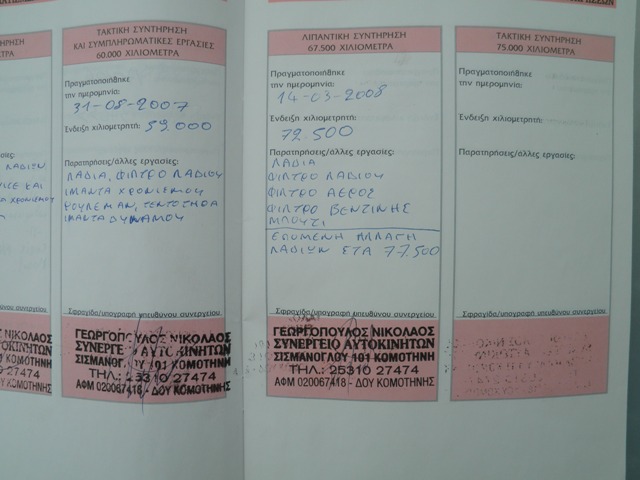 ΗΡΗΣΗ
ΕΤΡΑ
ΛΑΔΙΩΝ
ΤΑΚΤΙΚΗ ΣΥΝΤΗΡΗΣΗ
ΚΑΙ ΣΥΜΠΛΗΡΩΜΑΤΙΚΕΣ ΕΡΓΑΣΙΕΣ
60.000 ΧΙΛΙΟΜΕΤΡΑ
Πραγματοποιήθηκε
την ημερομηνία:
31-08-2007
Ενδειξη χιλιομετρητή: 59.000
Παρατηρήσεις/άλλες εργασίες:
ΛΑΔΙΑ, ΦΙΛΤΡΟ ΛΑΔΙΟΥ
ΙΜΑΝΤΑ ΧΡΟΝΙΣΜΟΥ
ΡΟΥΛΕΜΑΝ, ΤΕΝΤΟΤΗΡΑ
ΙΜΑΝΤΑ ΔΥΝΑΜΟΥ
Σφραγίδα/υπογραφή υπευθύνου συνεργείου
ΓΕΩΡΓΟΠΟΥΛΟΣ ΝΙΚΟΛΑΟΣ
ΣΥΝΕΡΓΕΙΟ ΑΥΤΟΚΙΝΗΤΩΝ
ΣΙΣΜΑΝΟΓΛΟΥ 101 ΚΟΜΟΤΗΝΗ
ΤΗΛ.: 25310 27474
ΑΦΜ 020067418 - ΔΟΥ ΚΟΜΟΤΗΝΗΣ
ΛΙΠΑΝΤΙΚΗ ΣΥΝΤΗΡΗΣΗ
67.500 ΧΙΛΙΟΜΕΤΡΑ
Πραγματοποιήθηκε
την ημερομηνία:
14-03-2008
Ενδειξη χιλιομετρητή:
72.500
Παρατηρήσεις/άλλες εργασίες:
ΛΑΔΙΑ
ΦΙΛΤΡΟ ΛΑΔΙΟΥ
ΦΙΛΤΡΟ ΑΕΡΟΣ
ΦΙΛΤΡΟ ΒΕΝΖΙΝΗΣ
ΜΠΟΥΖΙ
ΕΠΟΜΕΝΗ ΑΛΛΑΓΗ
ΛΑΔΙΩΝ ΣΤΑ 77.500
Σφραγίδα/υπογραφή υπευθύνου συνεργείου
ΓΕΩΡΓΟΠΟΥΛΟΣ ΝΙΚΟΛΑΟΣ
ΣΥΝΕΡΓΕΙΟ ΑΥΤΟΚΙΝΗΤΩΝ
ΣΙΣΜΑΝΟΓΛΟΥ 101 ΚΟΜΟΤΗΝΗ
ΤΗΛ.: 25310 27474
ΑΦΜ 020067418 - ΔΟΥ ΚΟΜΟΤΗΝΗΣ
ΤΑΚΤΙΚΗ ΣΥΝΤΗΡΗΣΗ
75.000 ΧΙΛΙΟΜΕΤΡΑ
Πραγματοποιήθηκε
την ημερομηνία:
Ενδειξη χιλιομετρητή:
Παρατηρήσεις/άλλες εργασίες:
Σφραγίδα/υπογραφή υπευθύνου συνεργείου